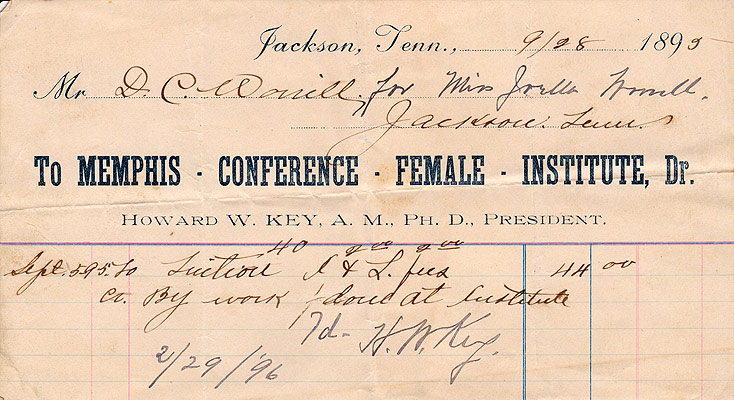 Jackson, Tenn., 9/28 1895
Mr D. C. Worrell, for Miss Joella Worrell.
Jackson. Tenn.
To MEMPHIS - CONFERENCE - FEMALE - INSTITUTE, Dr.
HOWARD W. KEY, A. M., PH. D., PRESIDENT.
40 2 00 2 00
Sept. 5 95 To Tuition I & L. fees 44 00
Cr. By work done at Institute
Pd- H. W. Key.
2/29/96